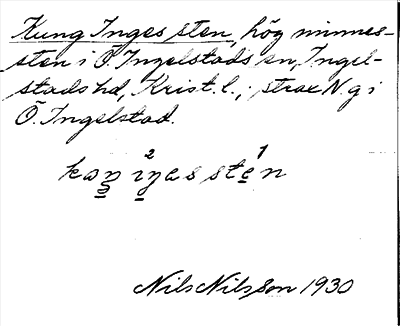 Kung Inges sten, hög minnes-
sten i Ö. Ingelstads sn, Ingel-
stads hd, Krist. l.; strax N. g i
Ö. Ingelstad.
2 1
kaŋ iŋas sten
Nils Nilsson 1930